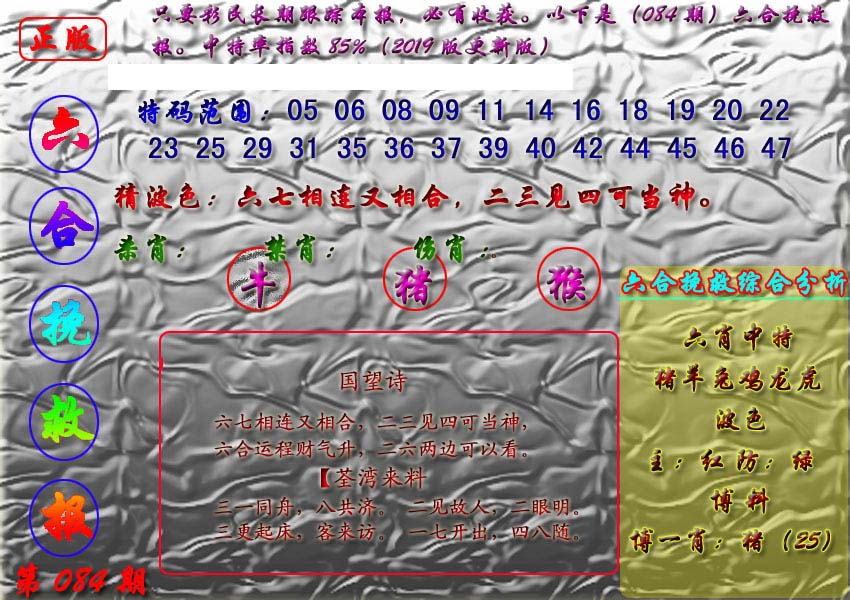 正版
只要彩民长期跟踪本报，必有收获。以下是（084期）六合挽救
报。中特率指数85%（2019版更新版）
六合挽救报
第084期
特码范围：05 06 08 09 11 14 16 18 19 20 22
23 25 29 31 35 36 37 39 40 42 44 45 46 47
猜波色：六七相连又相合，二三见四可当神。
杀肖： 禁肖： 伤肖：
牛 猪 猴
国望诗
六七相连又相合，二三见四可当神，
六合运程财气升，二六两边可以看。
【荃湾来料
三一同舟，八共济。 二见故人，二眼明。
三更起床，客来访。 一七开出，四八随。
六合挽救综合分析
六肖中特
猪羊兔鸡龙虎
波色
主：红防：绿
博料
博一肖：猪（25）